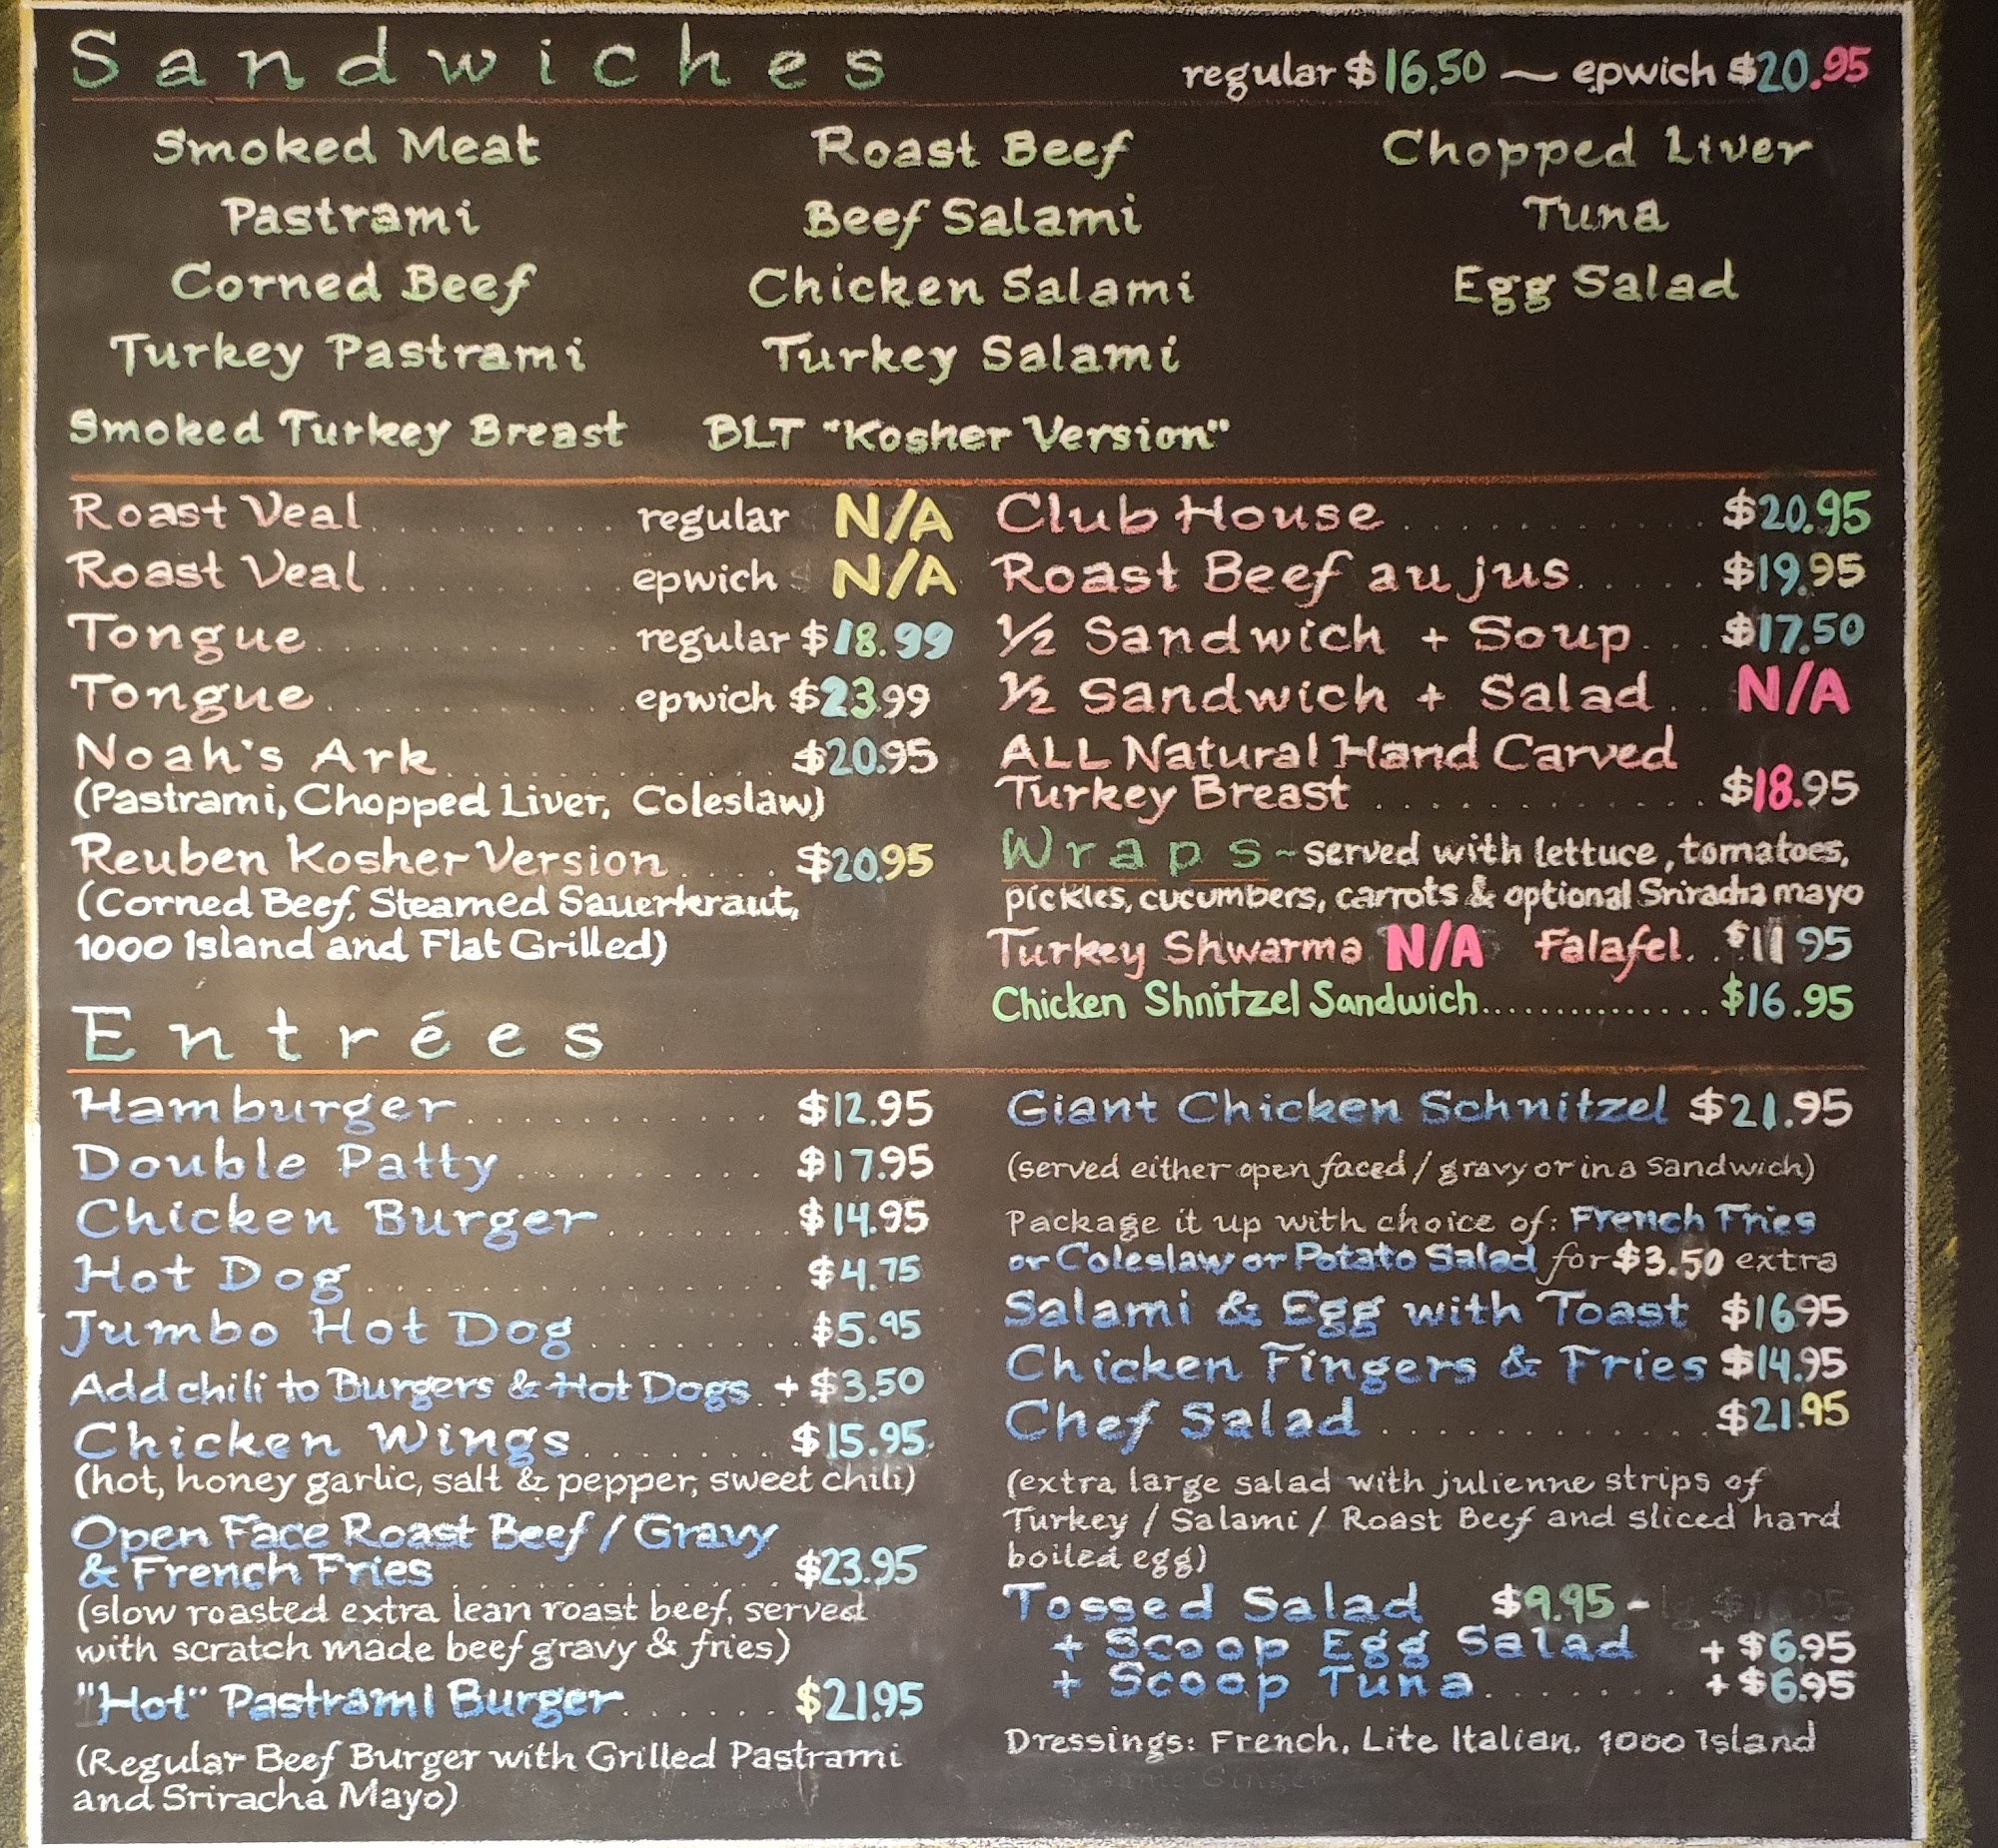 Sandwiches regular $16.50 ~ epwich $20.95
Smoked Meat Roast Beef Chopped Liver
Pastrami Beef Salami Tuna
Corned Beef Chicken Salami Egg Salad
Turkey Pastrami Turkey Salami
Smoked Turkey Breast BLT "Kosher Version"
Roast Veal.......... regular N/A
Roast Veal.......... epwich N/A
Tongue............. regular $18.99
Tongue............. epwich $23.99
Noah's Ark............. $20.95
(Pastrami, Chopped Liver, Coleslaw)
Reuben Kosher Version..... $20.95
(Corned Beef, Steamed Sauerkraut,
1000 Island and Flat Grilled)
Club House............. $20.95
Roast Beef au jus..... $19.95
½ Sandwich + Soup... $17.50
½ Sandwich + Salad.. N/A
ALL Natural Hand Carved
Turkey Breast............. $18.95
Wraps - served with lettuce, tomatoes,
pickles, cucumbers, carrots & optional Sriracha mayo
Turkey Shwarma N/A Falafel... $11.95
Chicken Shnitzel Sandwich............... $16.95
Entrées
Hamburger............. $12.95
Double Patty.......... $17.95
Chicken Burger....... $14.95
Hot Dog................ $4.75
Jumbo Hot Dog........ $5.95
Add chili to Burgers & Hot Dogs. + $3.50
Chicken Wings....... $15.95
(hot, honey garlic, salt & pepper, sweet chili)
Open Face Roast Beef / Gravy
& French Fries............. $23.95
(slow roasted extra lean roast beef, served
with scratch made beef gravy & fries)
"Hot" Pastrami Burger...... $21.95
(Regular Beef Burger with Grilled Pastrami
and Sriracha Mayo)
Giant Chicken Schnitzel $21.95
(served either open faced / gravy or in a sandwich)
Package it up with choice of: French Fries
or Coleslaw or Potato Salad for $3.50 extra
Salami & Egg with Toast $16.95
Chicken Fingers & Fries $14.95
Chef Salad............. $21.95
(extra large salad with julienne strips of
Turkey / Salami / Roast Beef and sliced hard
boiled egg)
Tossed Salad $9.95 -
+ Scoop Egg Salad + $6.95
+ Scoop Tuna........ + $6.95
Dressings: French, Lite Italian, 1000 Island